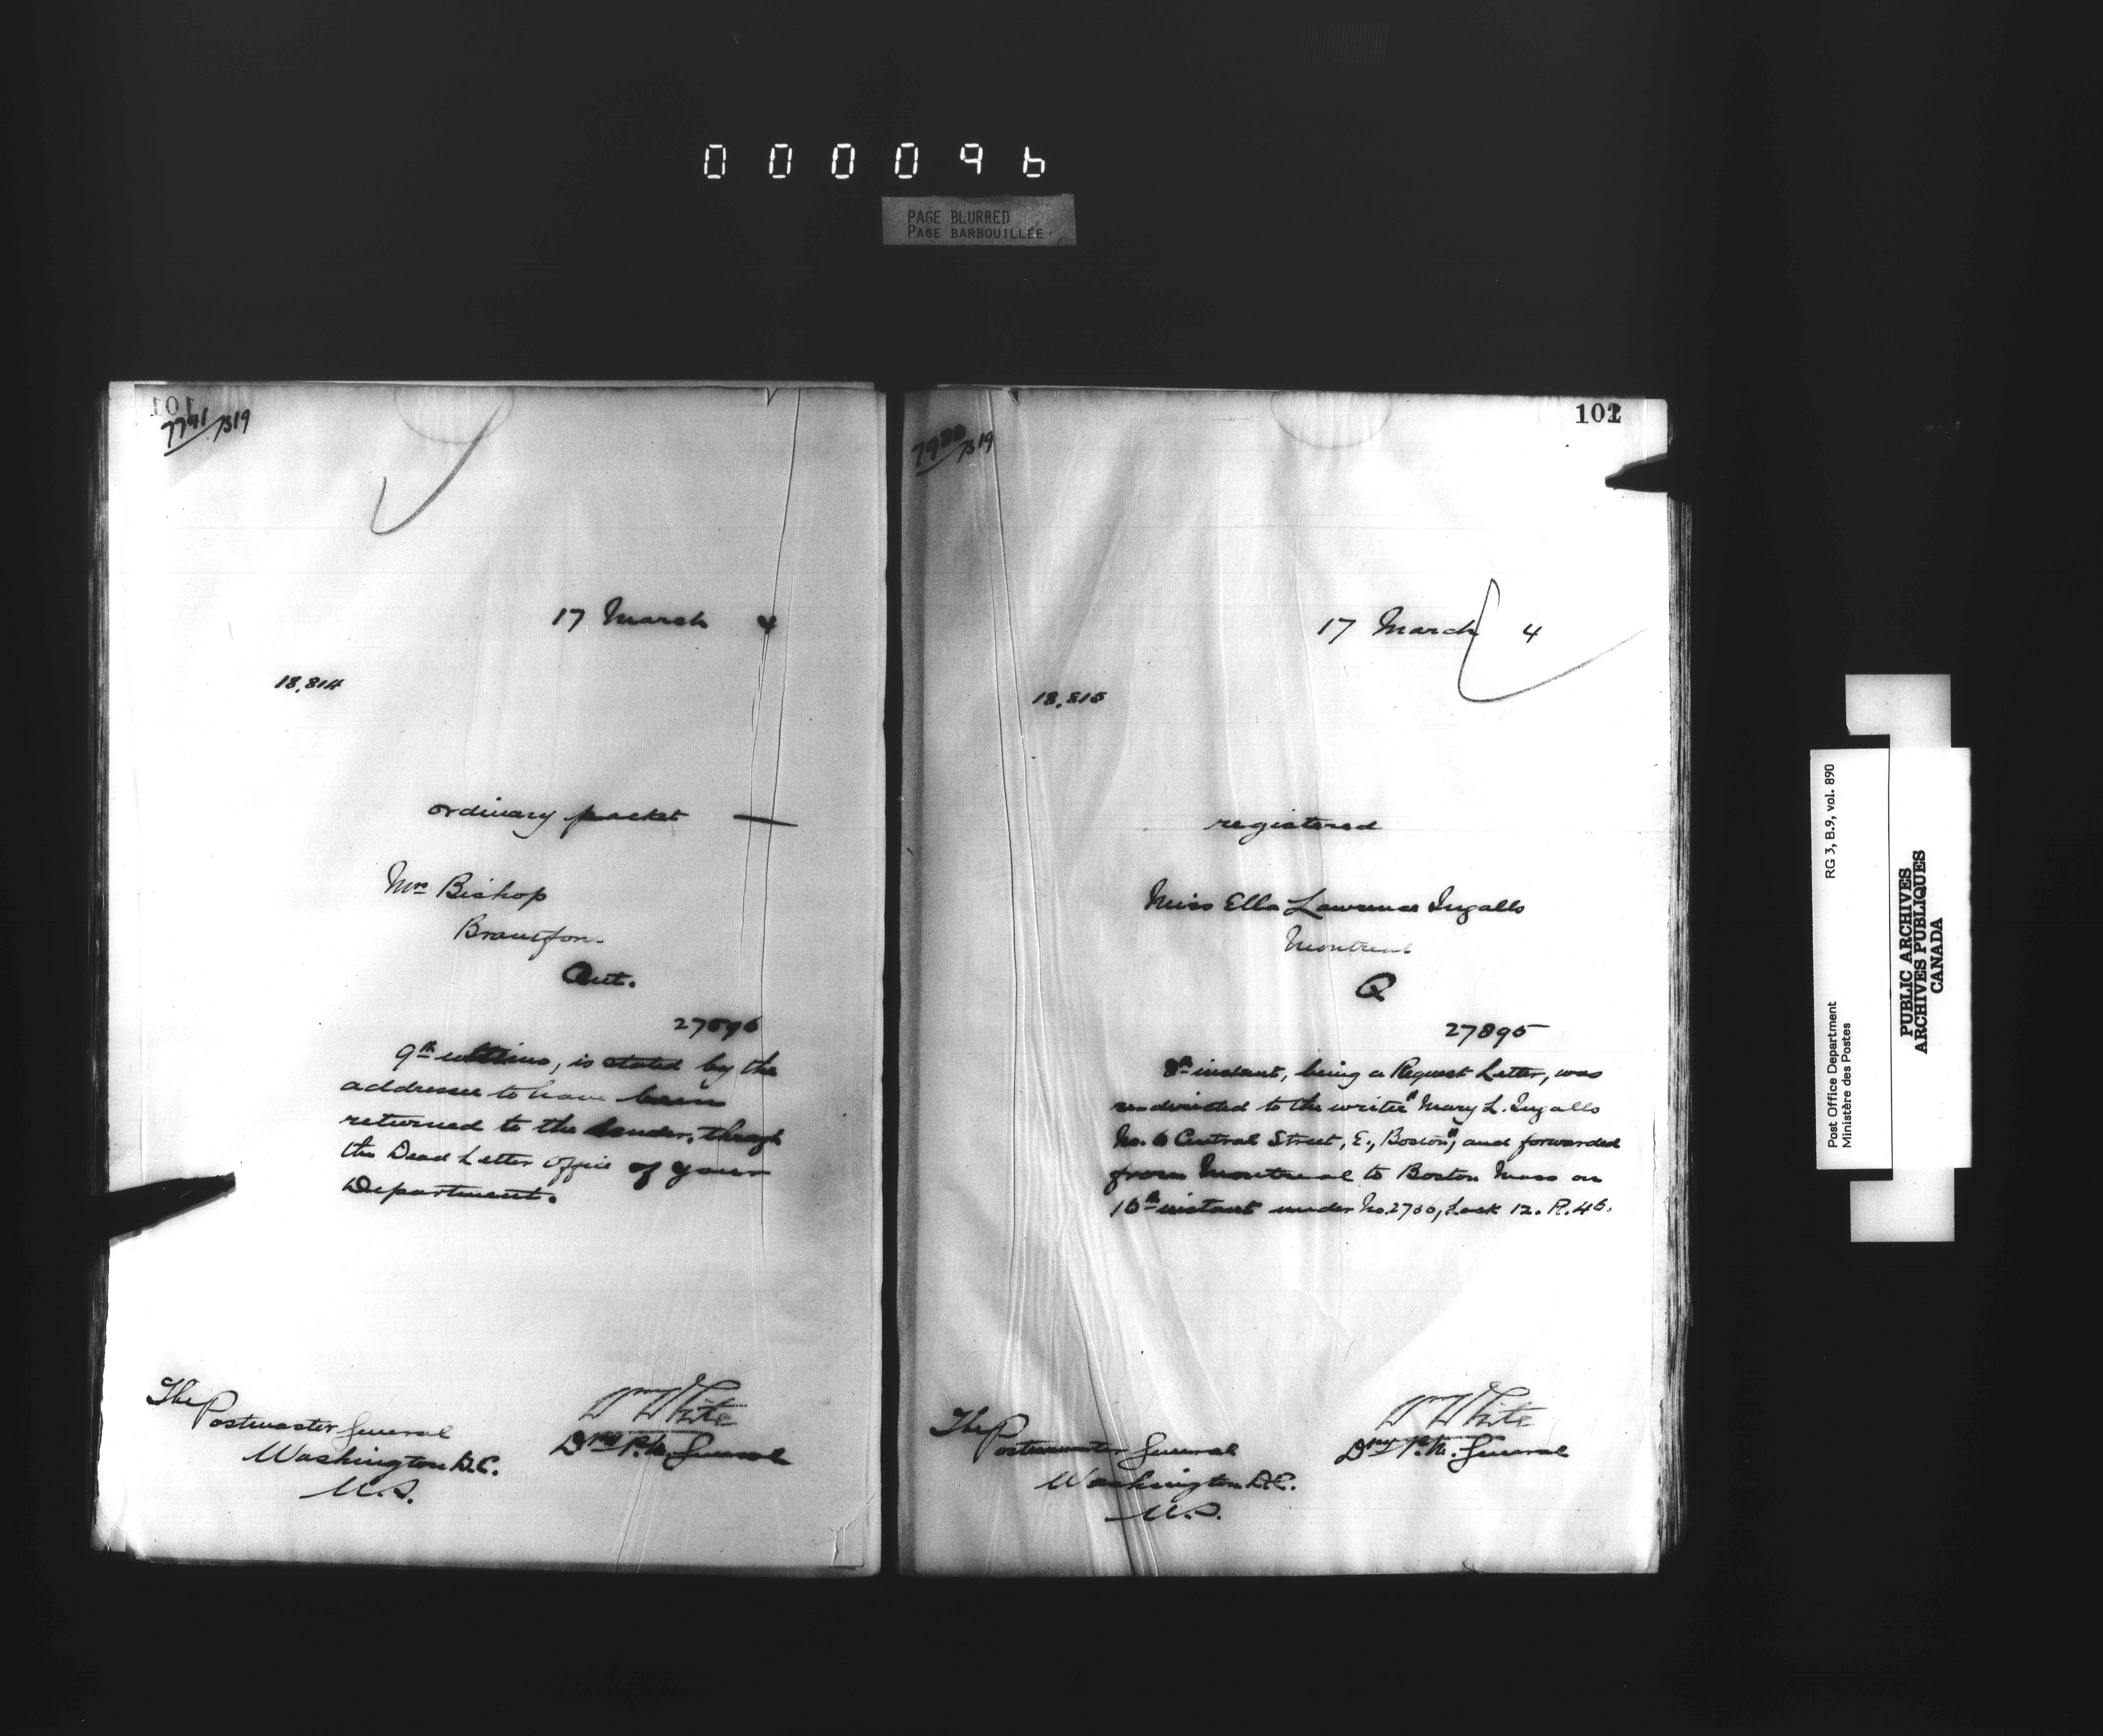 000096
PAGE BLURRED
PAGE BARBOUILLÉE
101
7741/B19
17 March 4
18,814
ordinary packet —
Mrs Bishop
Brantford
Ont.
27596
9th ultimo, is stated by the
addressee to have been
returned to the sender, through
the Dead Letter Office of your
Department.
The
Postmaster General
Washington D.C.
U.S.
Wm White
Dpy P.M. General
102
7980/B19
17 March 4
18,815
registered
Miss Ella Lawrence Ingalls
Montreal
Q
27895
8th instant, being a Request Letter, was
redirected to the writer "Mary L. Ingalls
No. 6 Central Street, E., Boston", and forwarded
from Montreal to Boston Mass on
10th instant under No. 2700, Lock 12. R. 46.
The
Postmaster General
Washington D.C.
U.S.
Wm White
Dpy P.M. General
Post Office Department
Ministère des Postes
RG 3, B.9, vol. 890
PUBLIC ARCHIVES
ARCHIVES PUBLIQUES
CANADA